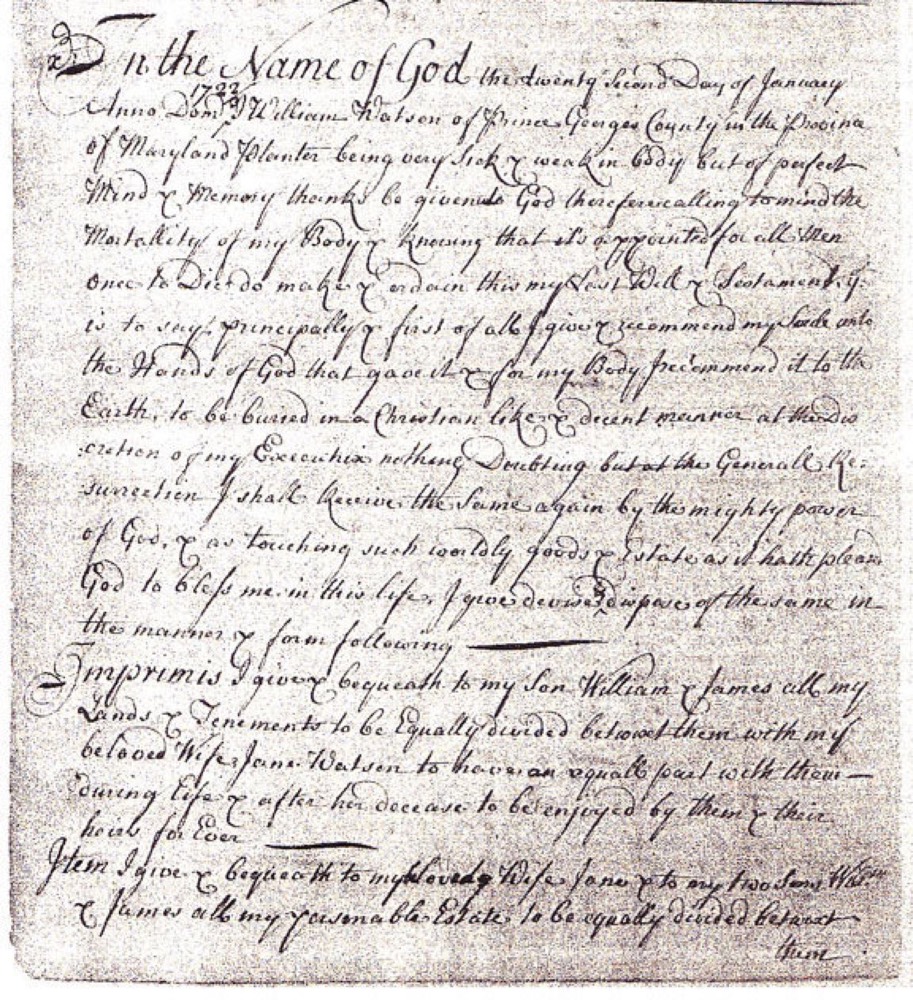 In the Name of God the twenty Second Day of January
Anno Dom 1722/3 I William Watson of Prince Georges County in the Province
of Maryland Planter being very Sick & weak in body but of perfect
Mind & Memory thanks be given to God therefore calling to mind the
Mortallity of my Body & knowing that it's appointed for all Men
once to Die do make & ordain this my Last Will & Testament, yt.
is to say, principally & first of all I give & recommend my Soule into
the Hands of God that gave it & for my Body I recommend it to the
Earth, to be buried in a Christian like & decent manner at the Dis
cretion of my Executrix nothing Doubting but at the Generall Re:
surrection I shall Receive the Same again by the mighty power
of God, & as touching such worldly goods & Estate as it hath pleas
God to bless me in this life, I give devise & dispose of the same in
the manner & form following
Imprimis I give & bequeath to my Son William & James all my
Lands & Tenements to be Equally divided betwixt them with my
beloved Wife Jane Watson to have an equall part with them
during Life & after her decease to be enjoyed by them & their
heirs for Ever
Item I give & bequeath to my beloved Wife Jane & to my two Sons Willm
& James all my parsonable Estate to be equally divided betwixt
them